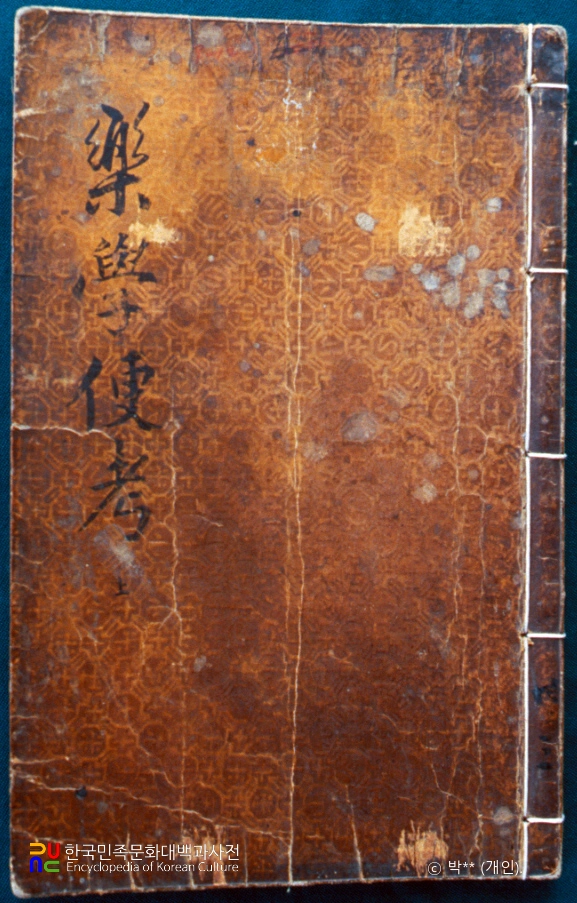 樂學便考
上
한국민족문화대백과사전
Encyclopedia of Korean Culture
ⓒ 박** (개인)